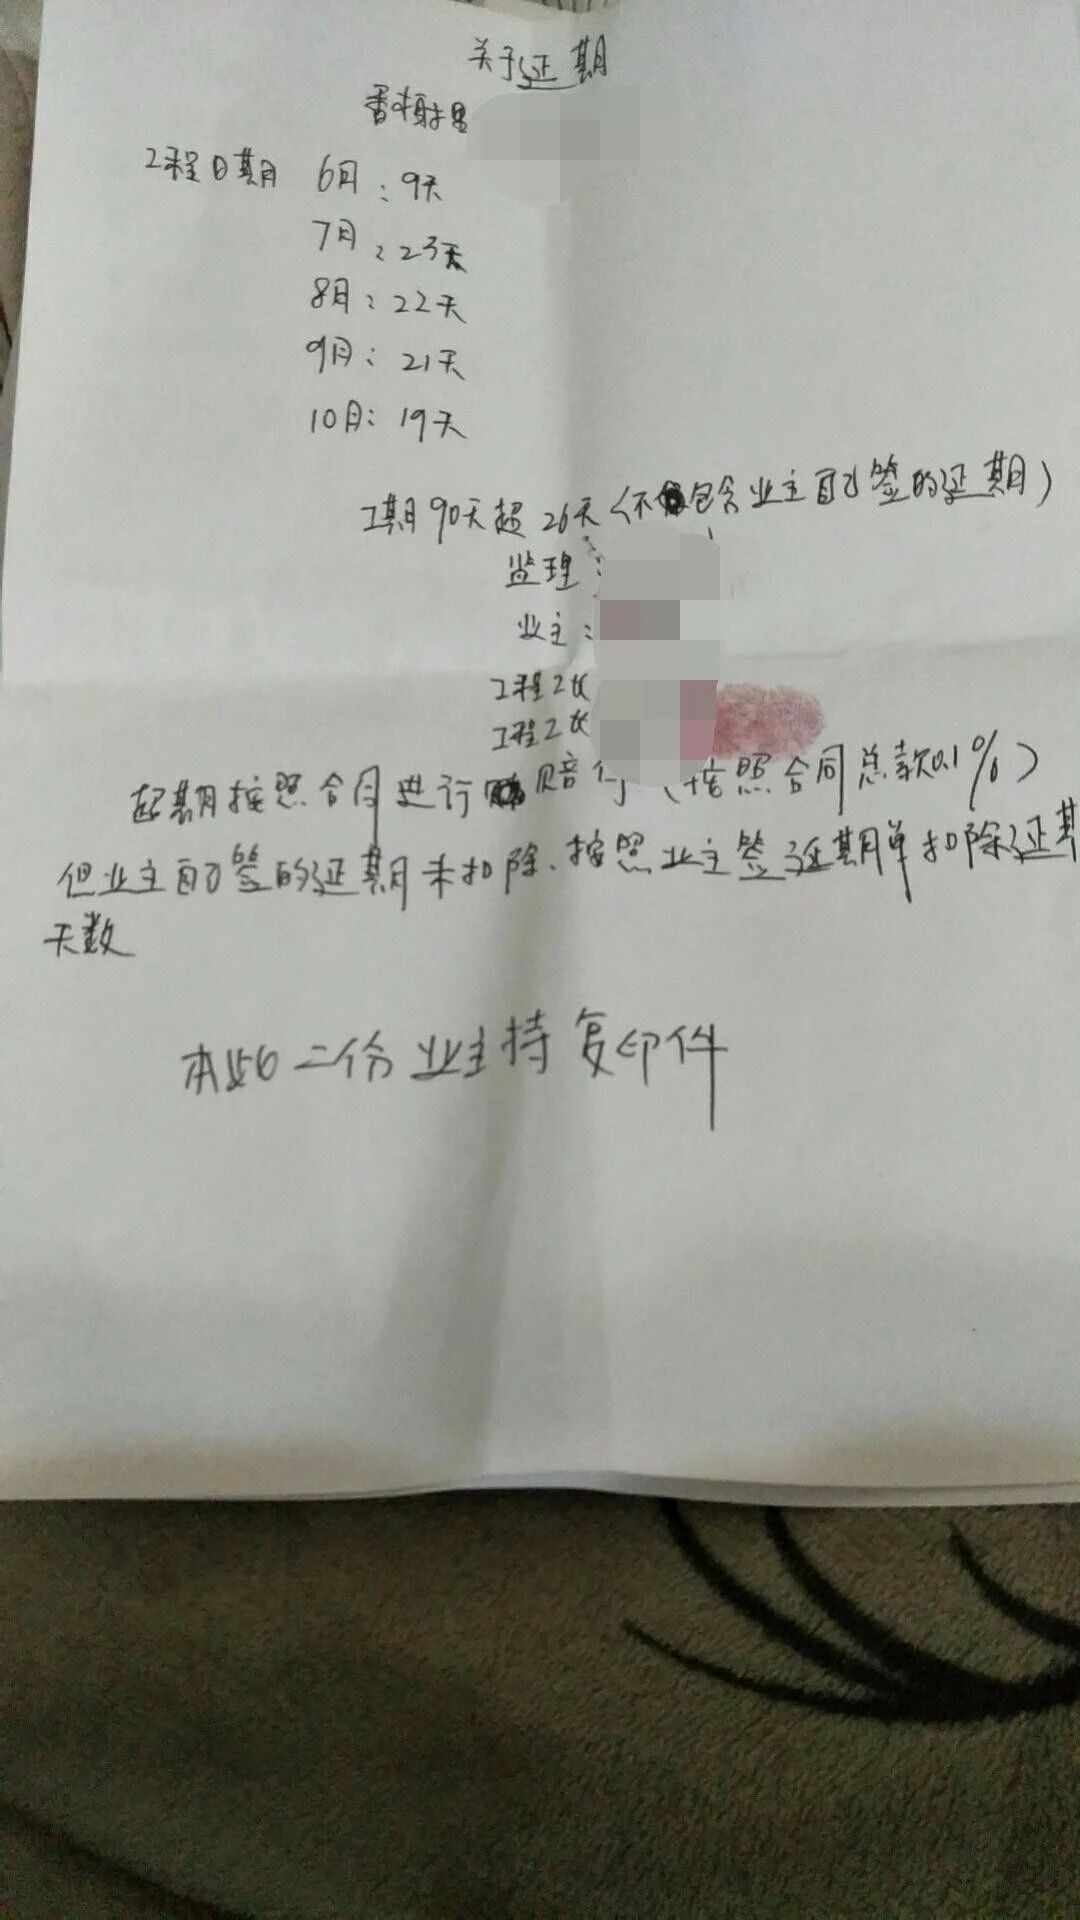 关于延期
香榭
工程日期 6月：9天
7月：23天
8月：22天
9月：21天
10月：19天
工期90天超26天(不包含业主自己签的延期)
监理：
业主：
工程工长
工程工长
超期按照合同进行赔付(按照合同总款0.1%)
但业主自己签的延期未扣除、按照业主签延期单扣除延期
天数
本 二份业主持复印件